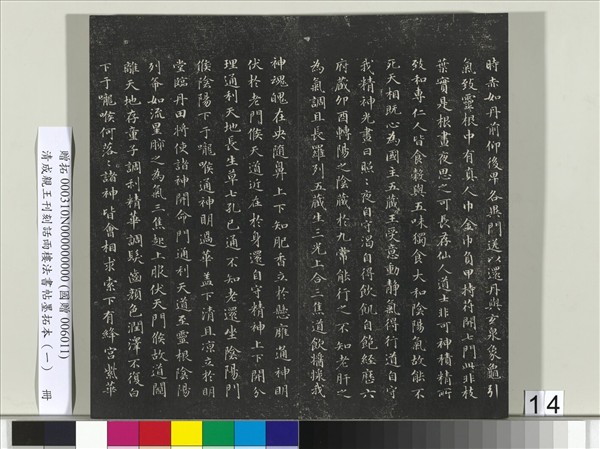 時赤如丹前仰後卑各異門送以還丹與玄泉象龜引
氣致靈根中有真人巾金巾負甲持符開七門此非枝
葉實是根晝夜思之可長存仙人道士非可神積精所
致和專仁人皆食穀與五味獨食大和陰陽氣故能不
死天相既心為國主五藏王受意動靜氣得行道自守
我精神光晝日照〻夜自守渴自得飲飢自飽經歷六
府藏卯酉轉陽之陰藏於九常能行之不知老肝之
為氣調且長羅列五藏生三光上合三焦道飲漿我
神魂魄在央隨鼻上下知肥香立於懸膺通神明
伏於老門候天道近在於身還自守精神上下開分
理通利天地長生草七孔已通不知老還坐陰陽門
候陰陽下于嚨喉通神明過華蓋下清且涼立於明
堂臨丹田將使諸神開命門通利天道至靈根陰陽
列布如流星肺之為氣三焦起上服伏天門候故道闚
離天地存童子調利精華調髮齒顏色潤澤不復白
下于嚨喉何落〻諸神皆會相求索下有絳宮紫華
贈拓000310N000000000(國贈006011)
清成親王刊刻話雨樓法書帖墨拓本(一) 冊
14